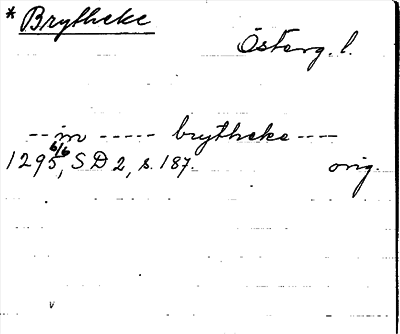 * Brytheke
Österg. l.
-- in ----- brytheke ----
1295 6/6, SD 2, s. 187. orig.
v